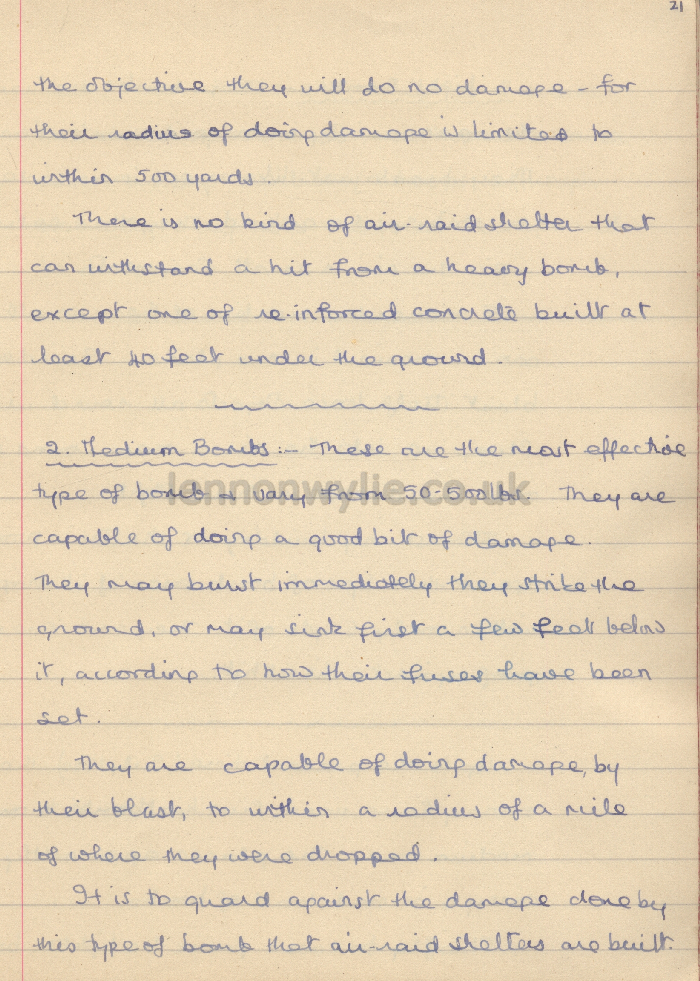 21
the objective they will do no damage - for
their radius of doing damage is limited to
within 500 yards.
There is no kind of air-raid shelter that
can withstand a hit from a heavy bomb,
except one of re-inforced concrete built at
least 40 feet under the ground.
2. Medium Bombs :- These are the most effective
lennonwylie.co.uk
type of bomb & vary from 50-500 lbs. They are
capable of doing a good bit of damage.
They may burst immediately they strike the
ground, or may sink first a few feet below
it, according to how their fuses have been
set.
They are capable of doing damage, by
their blast, to within a radius of a mile
of where they were dropped.
It is to guard against the damage done by
this type of bomb that air-raid shelters are built.